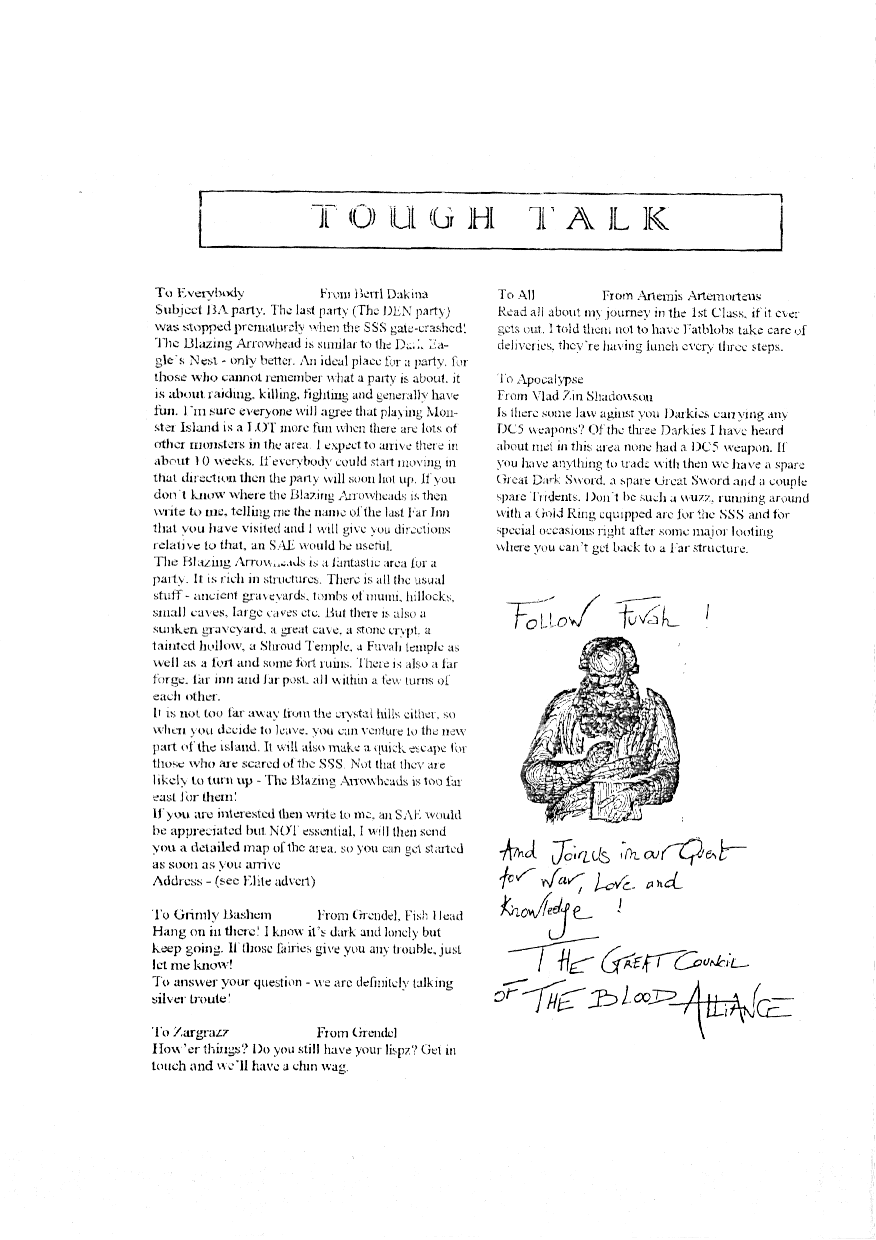 TOUGH TALK
To Everybody From Berrl Dakina
Subject BA party. The last party (The DEN party)
was stopped prematurely when the SSS gate-crashed!
The Blazing Arrowhead is similar to the Ea-
gle's Nest - only better. An ideal place for a party, for
those who cannot remember what a party is about, it
is about raiding, killing, fighting and generally have
fun. I'm sure everyone will agree that playing Mon-
ster Island is a LOT more fun when there are lots of
other monsters in the area. I expect to arrive there in
about 10 weeks. If everybody could start moving in
that direction then the party will soon hot up. If you
don't know where the Blazing Arrowheads is then
write to me, telling me the name of the last Far Inn
that you have visited and I will give you directions
relative to that, an SAE would be useful.
The Blazing Arrowheads is a fantastic area for a
party. It is rich in structures. There is all the usual
stuff - ancient graveyards, tombs of mumi, hillocks,
small caves, large caves etc. But there is also a
sunken graveyard, a great cave, a stone crypt, a
tainted hollow, a Shroud Temple, a Fuvah temple as
well as a fort and some fort ruins. There is also a far
forge, far inn and far post, all within a few turns of
each other.
It is not too far away from the crystal hills either, so
when you decide to leave, you can venture to the new
part of the island. It will also make a quick escape for
those who are scared of the SSS. Not that they are
likely to turn up - The Blazing Arrowheads is too far
east for them!
If you are interested then write to me, an SAE would
be appreciated but NOT essential, I will then send
you a detailed map of the area, so you can get started
as soon as you arrive
Address - (see Elite advert)
To Grimly Bashem From Grendel, Fish Head
Hang on in there! I know it's dark and lonely but
keep going. If those fairies give you any trouble, just
let me know!
To answer your question - we are definitely talking
silver troute!
To Zargrazz From Grendel
How'er things? Do you still have your lispz? Get in
touch and we'll have a chin wag.
To All From Artemis Artemorteus
Read all about my journey in the 1st Class, if it ever
gets out. I told them not to have Fatblobs take care of
deliveries, they're having lunch every three steps.
To Apocalypse
From Vlad Zin Shadowson
Is there some law aginst you Darkies carrying any
DC5 weapons? Of the three Darkies I have heard
about met in this area none had a DC5 weapon. If
you have anything to trade with then we have a spare
Great Dark Sword, a spare Great Sword and a couple
spare Tridents. Don't be such a wuzz, running around
with a Gold Ring equipped are for the SSS and for
special occasions right after some major looting
where you can't get back to a Far structure.
Follow Fuvah !
And Join us in our Quest
for War, Love and
Knowledge !
THE GREAT COUNCIL
OF THE BLOOD ALLIANCE